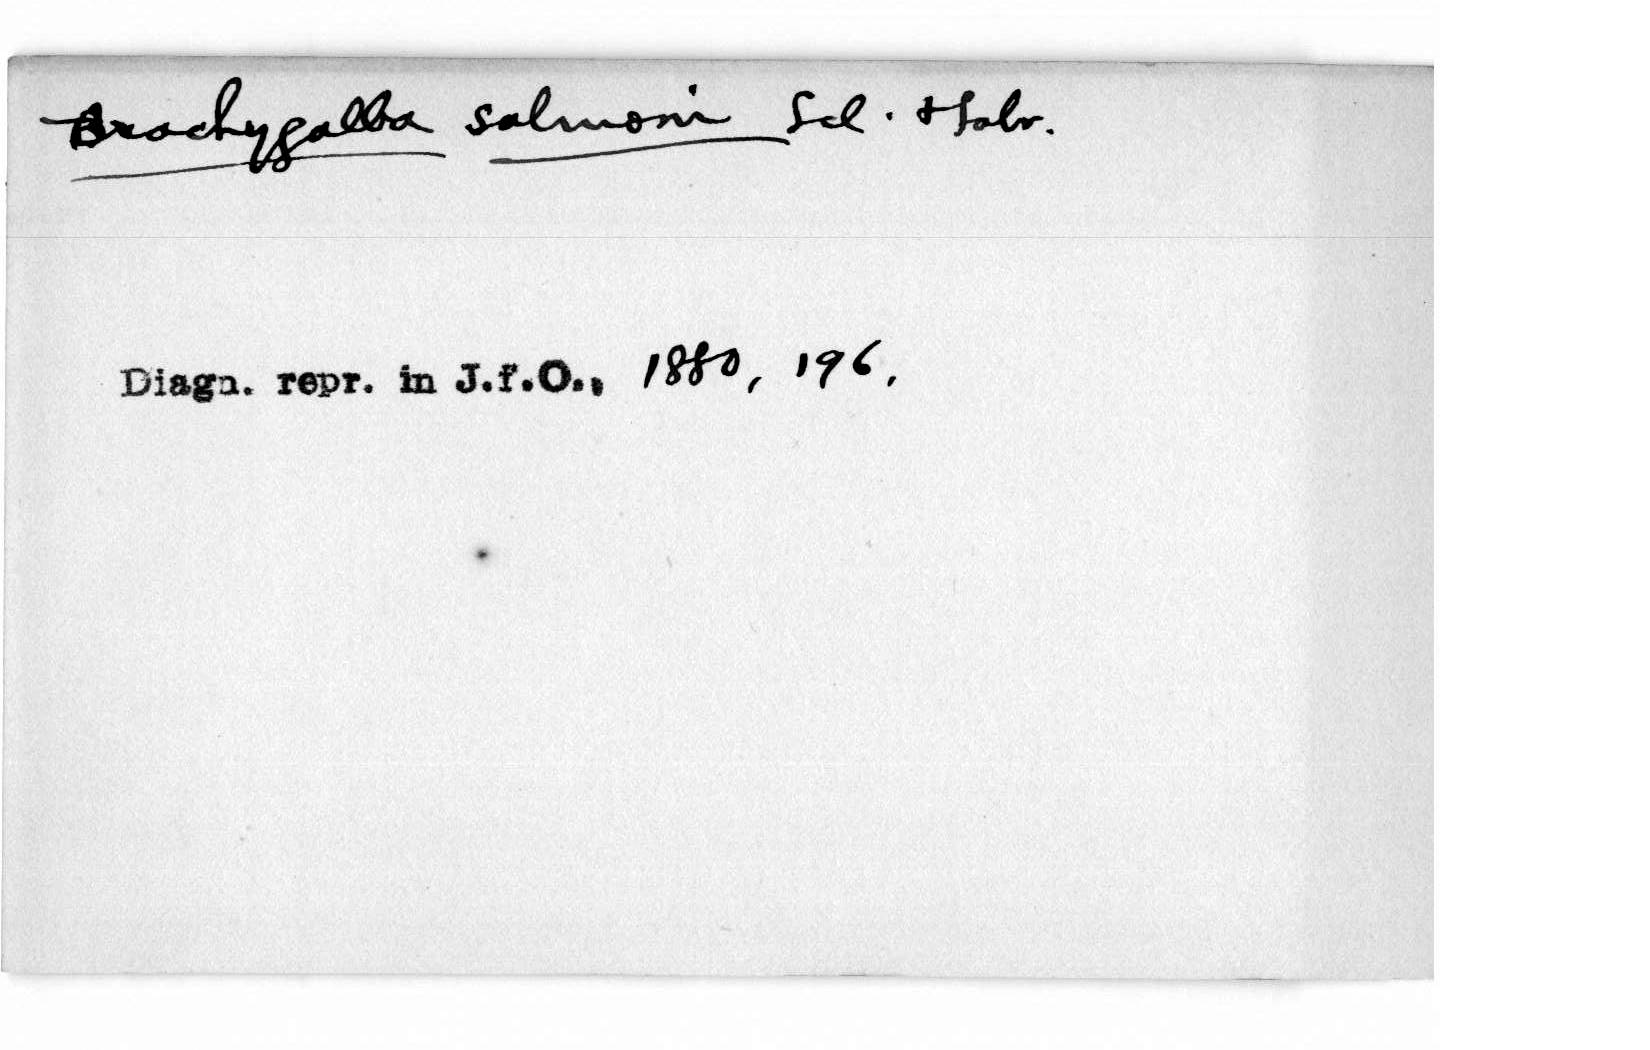 Brachygalba salmoni Scl. & Salv.
Diagn. repr. in J.f.O., 1880, 196.